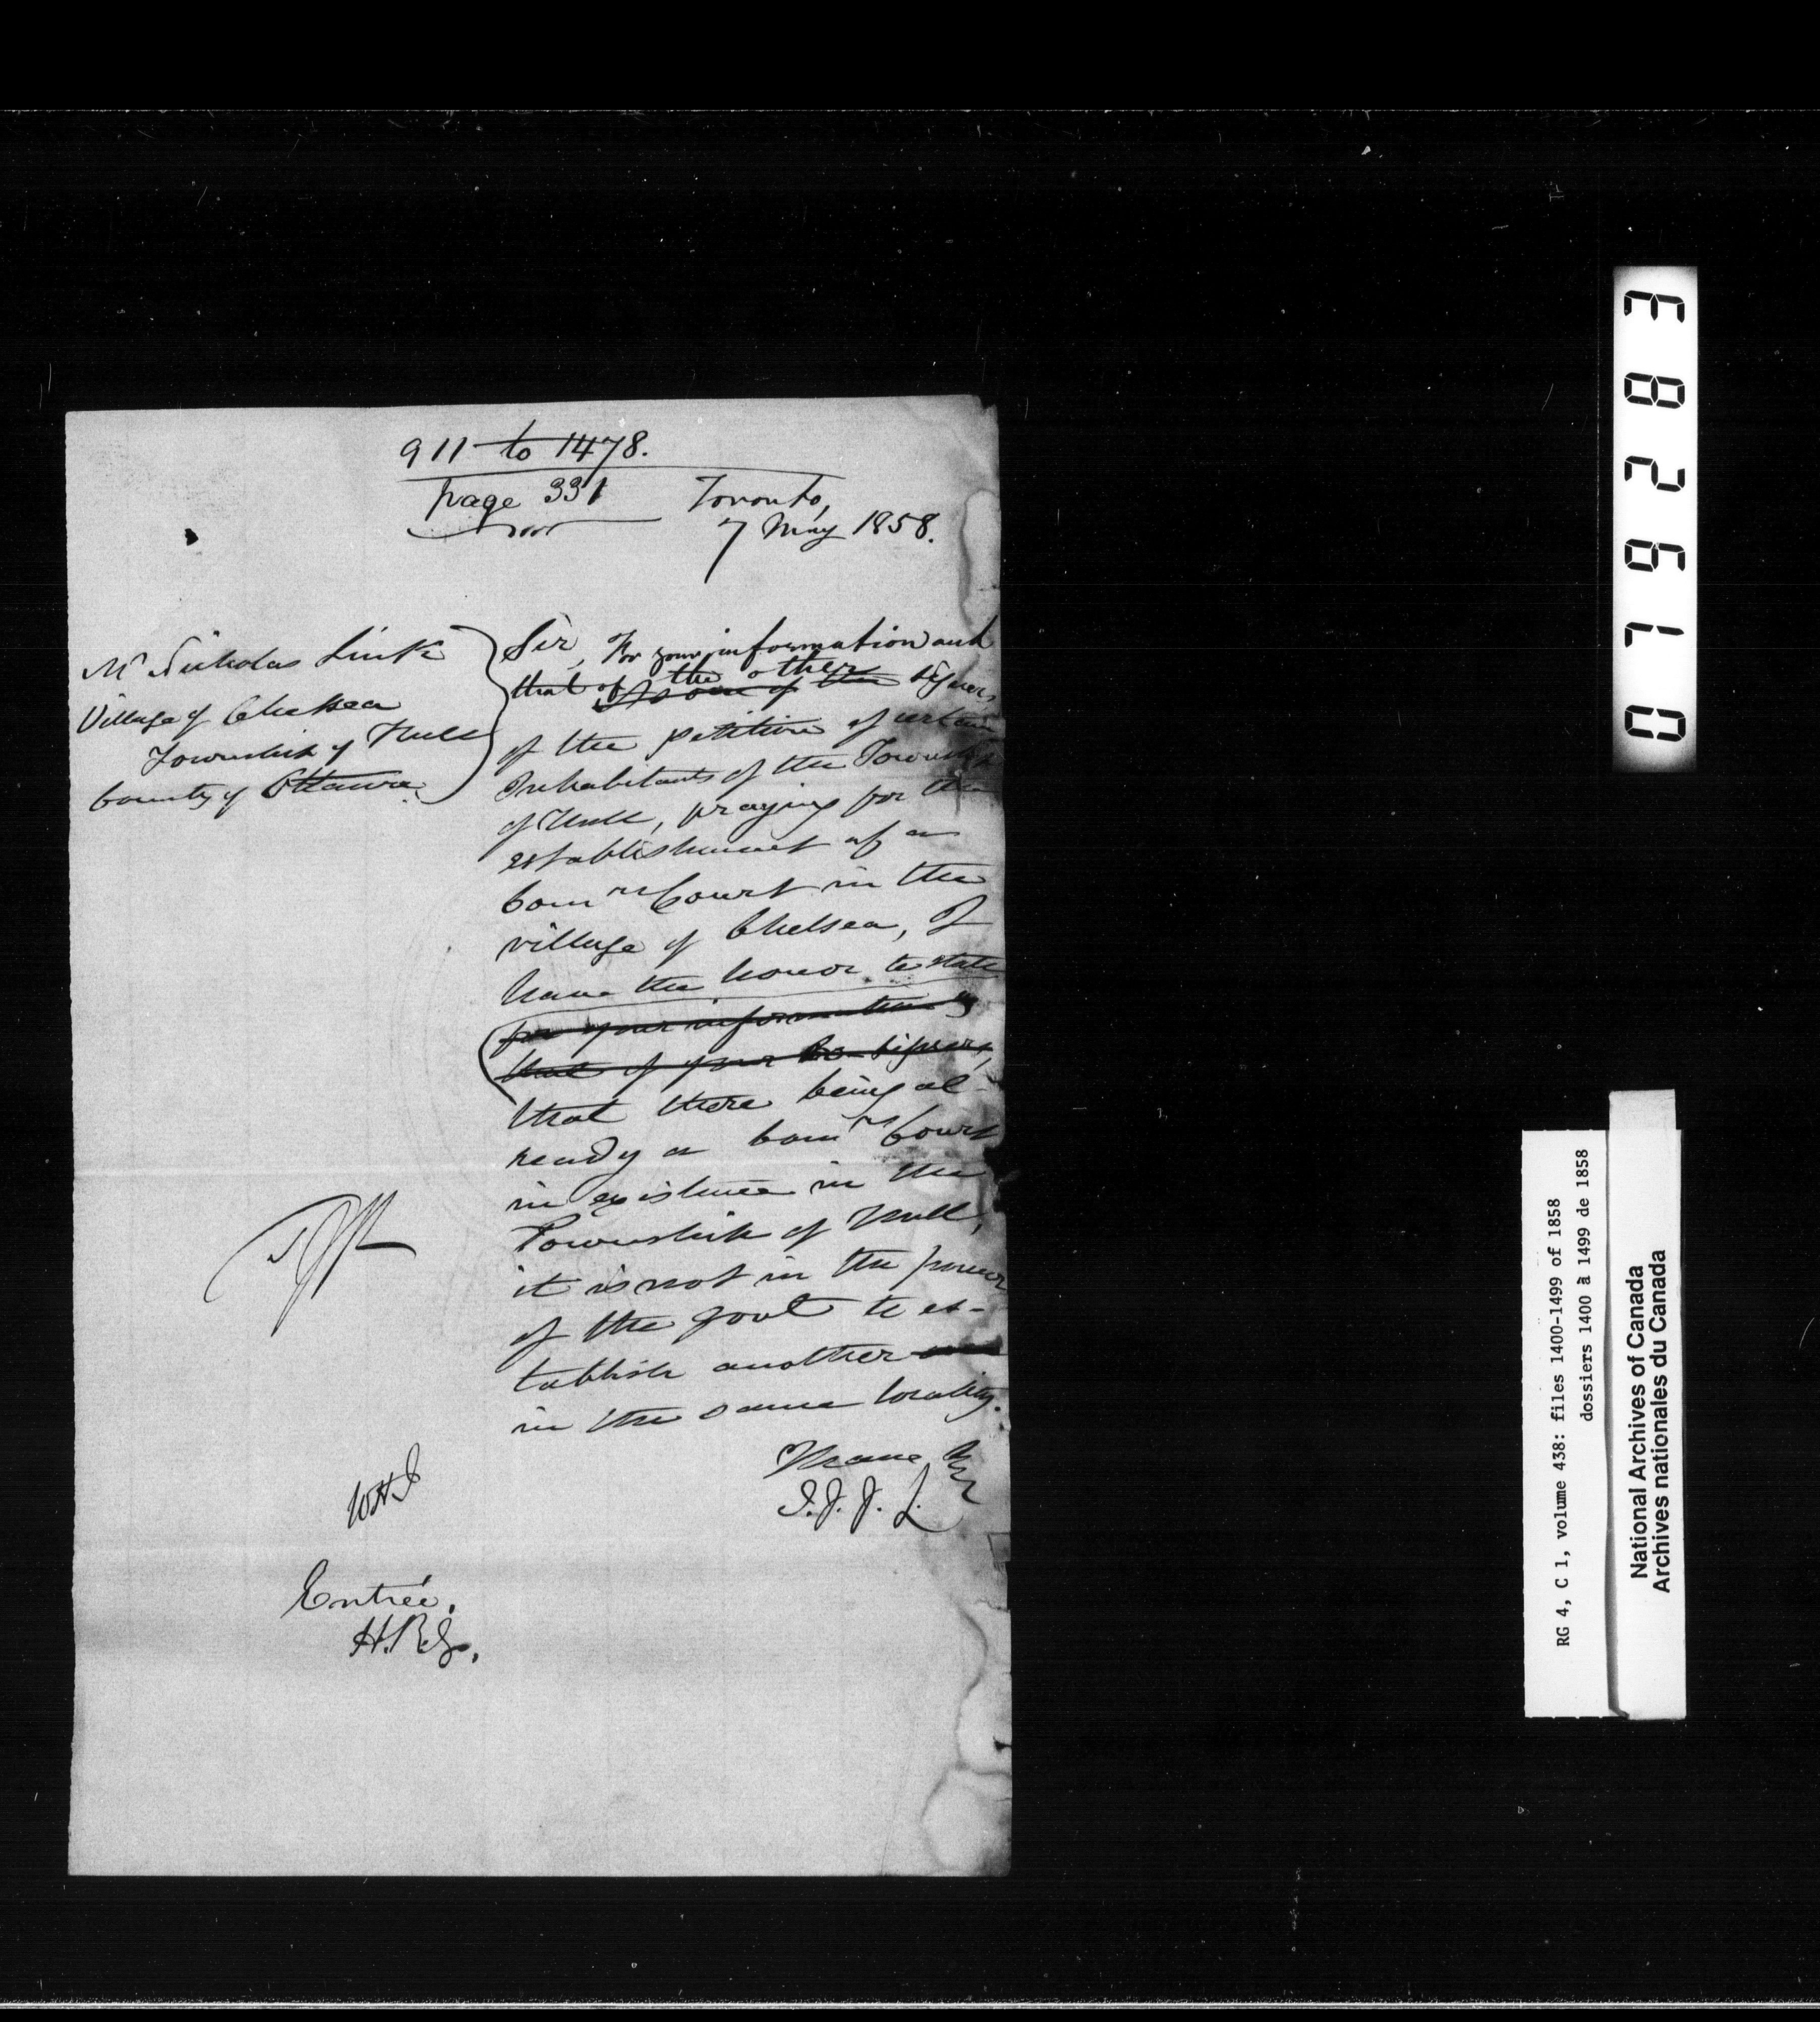 911 to 1478.
page 331
Toronto,
7 May 1858.
Mr Nicholas Link
Village of Chelsea
Township of Hull
County of Ottawa.
Sir, For your information and
that of the other signers
of the petition of certain
Inhabitants of the Township
of Hull, praying for the
establishment of a
Comrs Court in the
village of Chelsea, I
have the honor to state
for your information &
that of your Co-signers,
that there being al-
ready a Comrs Court
in existence in the
Township of Hull,
it is not in the power
of the Govt to es-
tablish another
in the same locality.
I have &c
T. J. J. L.
WHJ
Entrée.
H.R.J.
017
0 1 6 2 8 3
RG 4, C 1, volume 438: files 1400-1499 of 1858
dossiers 1400 à 1499 de 1858
National Archives of Canada
Archives nationales du Canada